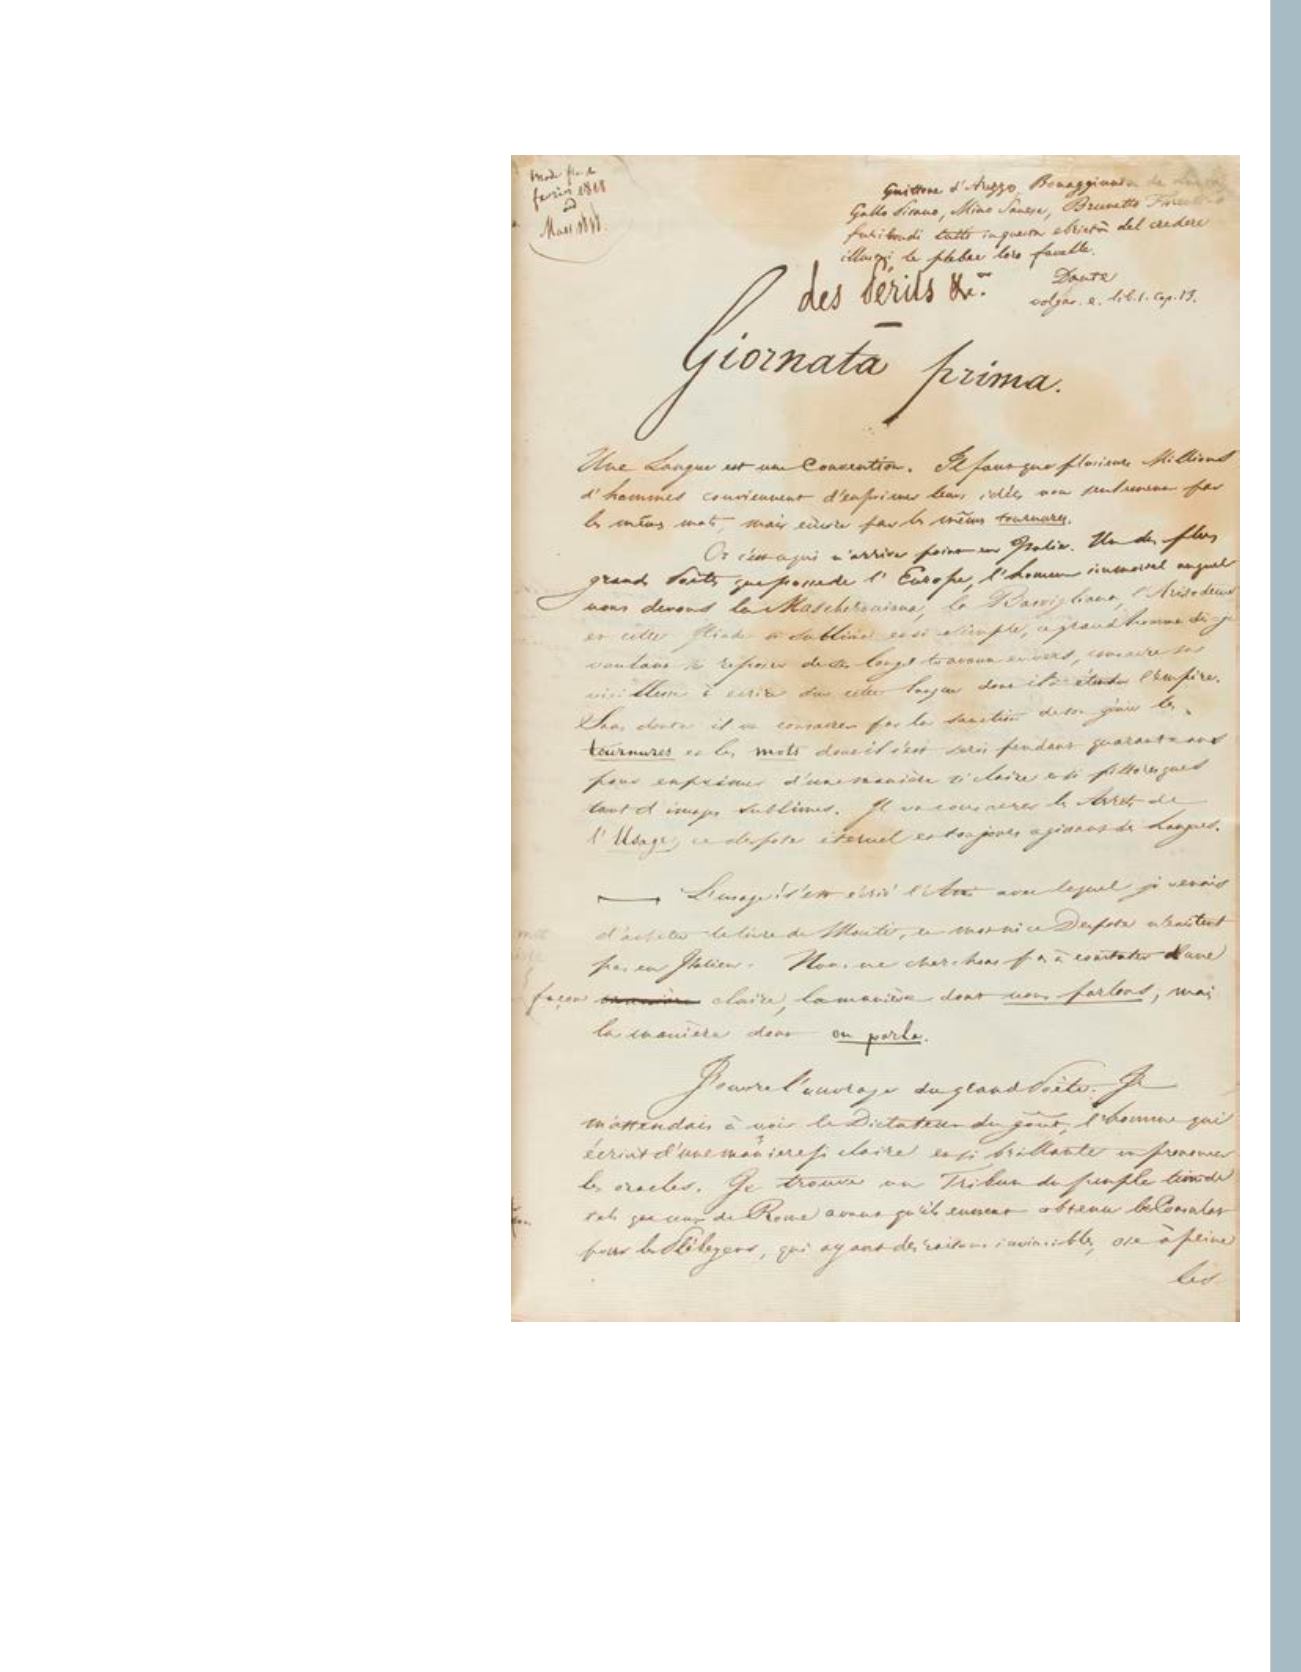 Made fin de
février 1818
and
Mars 1818.
Guittone d'Arezzo, Bonaggiunta da Lucca,
Gallo Pisano, Mino Sanese, Brunetto Fiorentino
furibondi tutti in questa ebrietà del credere
illustri le plebee loro favelle.
Dante
volgar. e. lib. 1. cap. 13.
des Périls &c.
Giornata prima.
Une Langue est une Convention. Il faut que plusieurs Millions
d'hommes conviennent d'exprimer leurs idées non seulement par
les mêmes mots, mais encore par les mêmes tournures.
Or c'est ce qui n'arrive point en Italie. Un des plus
grands Poëtes que possede l'Europe, l'homme immortel auquel
nous devons la Mascheroniana, la Basvigliana, l'Aristodeme
et cette Iliade si sublime et si simple, ce grand homme dis-je
voulant se reposer de ses longs travaux en vers, consacre sa
vieillesse à écrire sur cette langue dont il a étendu l'Empire.
Sans doute il va consacrer par la sanction de son génie les
tournures et les mots dont il s'est servi pendant quarante ans
pour exprimer d'une manière si claire et si pittoresque
tant d'images sublimes. Il va consacrer les Arrets de
l'Usage, ce despote éternel et toujours agissant des langues.
L'usage! s'est écrié l'Ami avec lequel je venais
d'acheter le livre de Monti, ce mot ni ce Despote n'existent
pas en Italien. Nous ne cherchons pas à constater d'une
façon claire, la manière dont nous parlons, mais
la manière dont on parla.
J'ouvre l'ouvrage du grand Poëte. Je
m'attendais à voir le Dictateur du goût, l'homme qui
écrivit d'une manière si claire et si brillante en prononcer
les oracles. Je trouve un Tribun du peuple timide
tels que ceux de Rome avant qu'ils eussent obtenu le Consulat
pour les Plébeyens, qui ayant des raisons invincibles, ose à peine
les